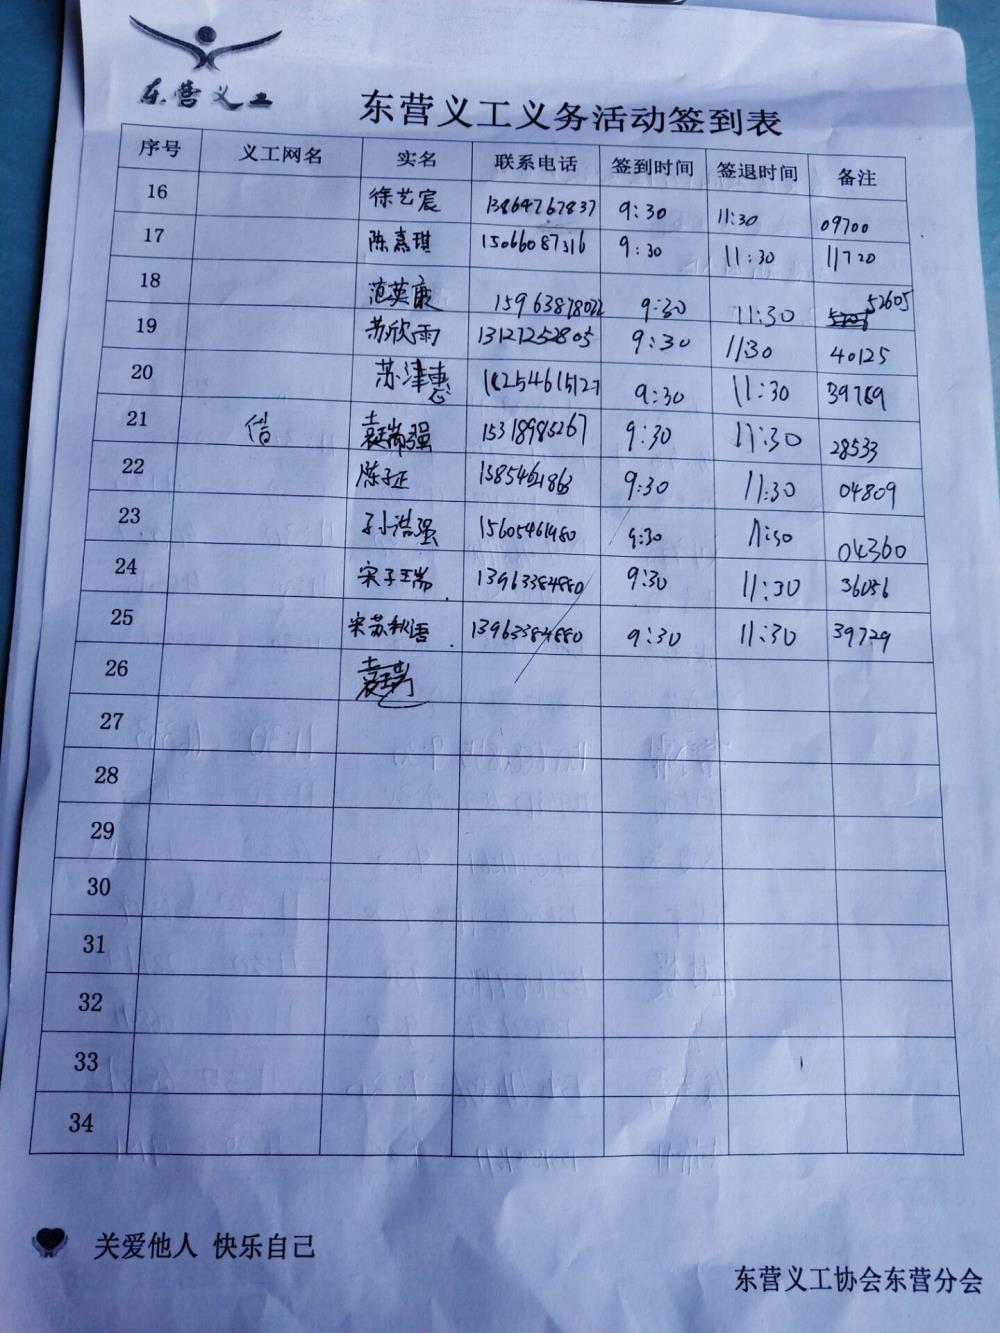 东营义工
东营义工义务活动签到表
序号 义工网名 实名 联系电话 签到时间 签退时间 备注
16 徐艺宸 13864767837 9:30 11:30 09700
17 陈熹琪 15066087316 9:30 11:30 11720
18 范英康 15963878022 9:30 11:30 52605
19 苏欣雨 13127252805 9:30 11:30 40125
20 苏津惠 9:30 11:30 39789
21 信 袁瑞强 15318985267 9:30 11:30 28533
22 陈子正 9:30 11:30 04809
23 孙浩强 15605461480 9:30 11:30 04360
24 宋子瑞 13963384880 9:30 11:30 36056
25 宋苏秋语 13963384880 9:30 11:30 39729
26
27
28
29
30
31
32
33
34
关爱他人 快乐自己
东营义工协会东营分会